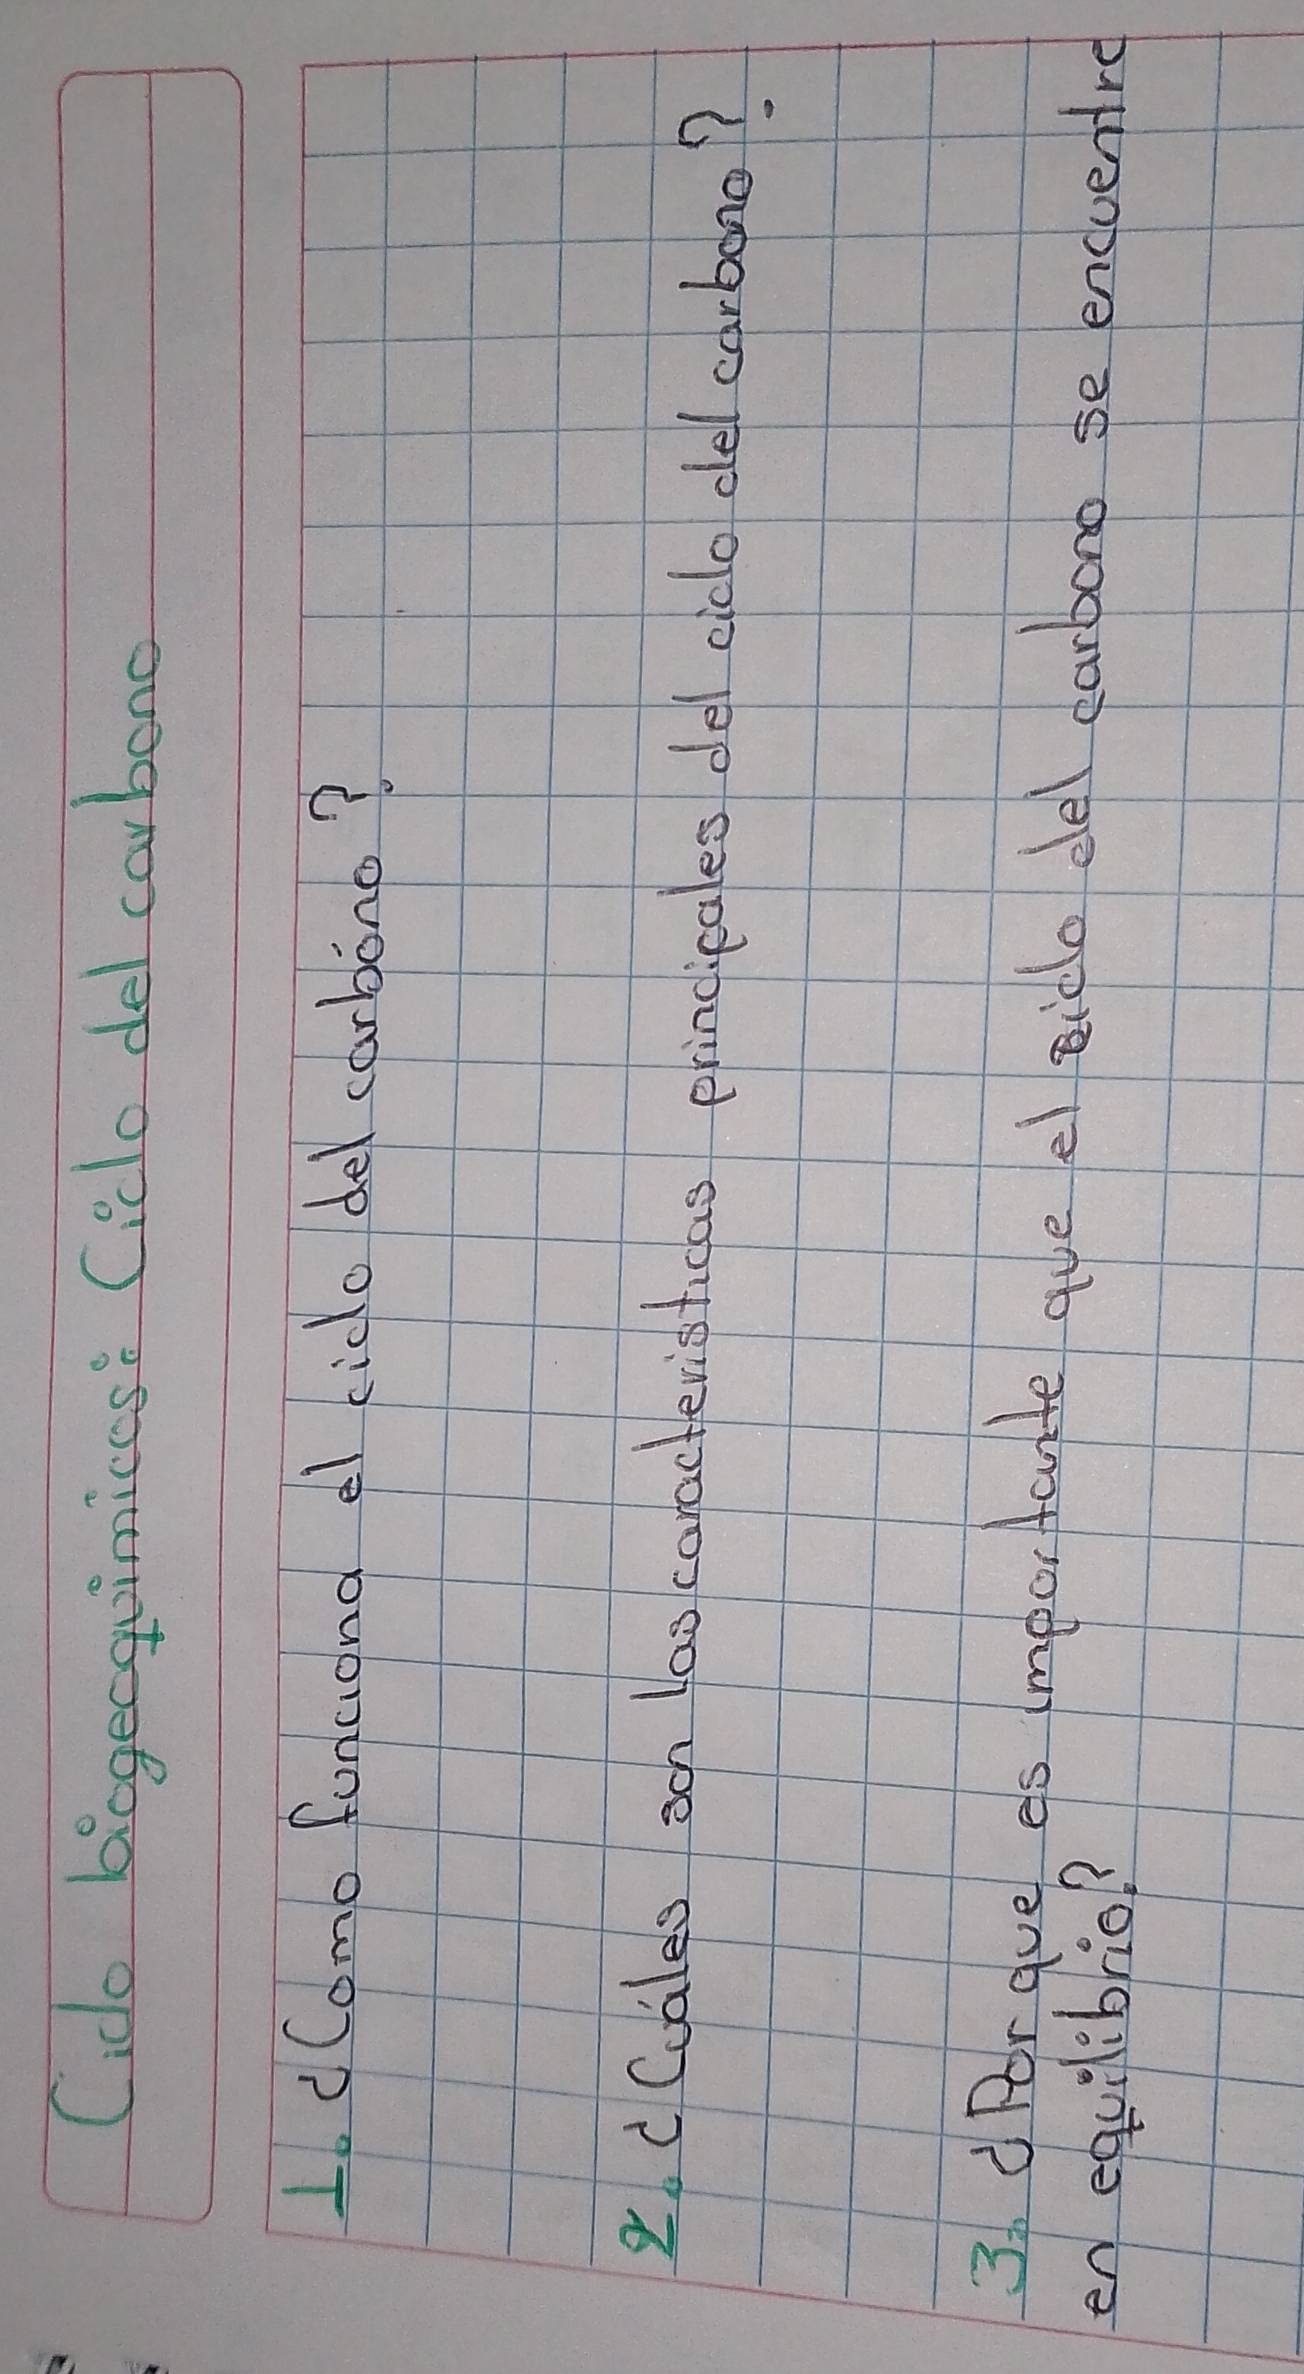 Ciclo biogeoquimicos: Ciclo del carbono
1. ¿Como funciona el ciclo del carbóno?
2. ¿Cuáles son las caracteristicas principales del ciclo del carbono?
3. ¿Por que es importante que el ciclo del carbono se encuentre
en equilibrio?